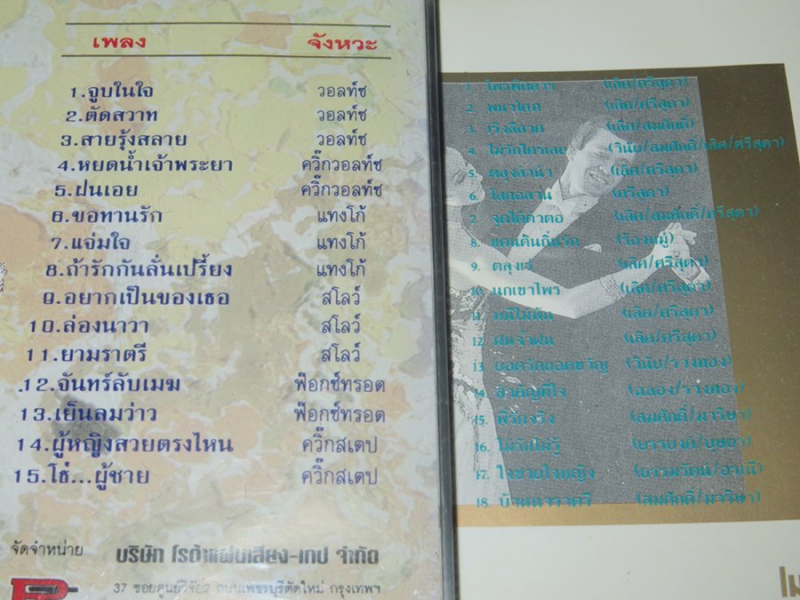 เพลง จังหวะ
1.จูบในใจ วอลท์ซ
2.ตัดสวาท วอลท์ซ
3.สายรุ้งสลาย วอลท์ซ
4.หยดน้ำเจ้าพระยา ควิ๊กวอลท์ซ
5.ฝนเอย ควิ๊กวอลท์ซ
6.ขอทานรัก แทงโก้
7.แจ่มใจ แทงโก้
8.ถ้ารักกันลั่นเปรี้ยง แทงโก้
9.อยากเป็นของเธอ สโลว์
10.ล่องนาวา สโลว์
11.ยามราตรี สโลว์
12.จันทร์ลับเมฆ ฟ๊อกซ์ทรอต
13.เย็นลมว่าว ฟ๊อกซ์ทรอต
14.ผู้หญิงสวยตรงไหน ควิ๊กสเตป
15.โธ่...ผู้ชาย ควิ๊กสเตป
จัดจำหน่าย บริษัท โรต้าแผ่นเสียง-เทป จำกัด
37 ซอยศูนย์วิจัย2 ถนนเพชรบุรีตัดใหม่ กรุงเทพฯ
1. ไพรพิสดาร (เลิศ/ศรีสุดา)
2. (เลิศ/ศรีสุดา)
3. เริงลีลาศ (เลิศ/สมศักดิ์)
4. ไม่รักใครเลย (วินัย/สมศักดิ์/เลิศ/ศรีสุดา)
5. (เลิศ/ศรีสุดา)
6. (ศรีสุดา)
7. (เลิศ/สมศักดิ์/ศรีสุดา)
8. (ร้องหมู่)
9. (เลิศ/ศรีสุดา)
10. นกเขาไพร (เลิศ/ศรีสุดา)
11. (เลิศ/ศรีสุดา)
12. (เลิศ/ศรีสุดา)
13. ยอดรักยอดขวัญ (วินัย/รวงทอง)
14. สำคัญที่ใจ (ฉลอง/รวงทอง)
15. (สมศักดิ์/มาริษา)
16. ไม่รักไม่รู้ (ยรรยงค์/บุษยา)
17. ใจชายใจหญิง
18. (สมศักดิ์/มาริษา)